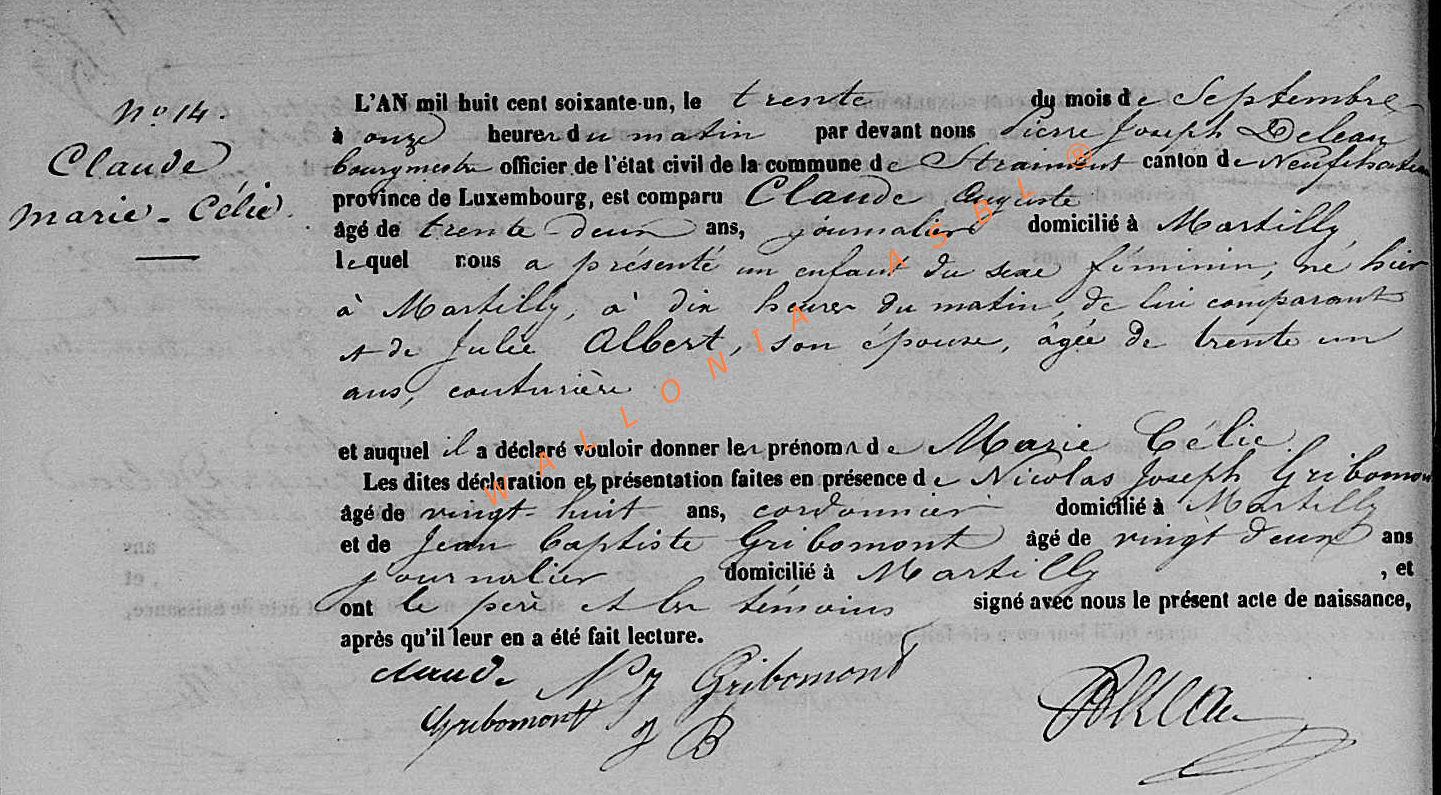 No 14.
Claude
Marie-Célie.
L'AN mil huit cent soixante-un, le trente du mois de Septembre
à onze heures du matin par devant nous Pierre Joseph Deleau
bourgmestre officier de l'état civil de la commune de Straimont canton de Neufchateau
province de Luxembourg, est comparu Claude Auguste
âgé de trente-deux ans, journalier domicilié à Martilly
lequel nous a présenté un enfant du sexe féminin, né hier
à Martilly, à dix heures du matin, de lui comparant
et de Julie Albert, son épouse, âgée de trente un
ans, couturière
et auquel il a déclaré vouloir donner les prénoms de Marie Célie.
Les dites déclaration et présentation faites en présence de Nicolas Joseph Gribomont
âgé de vingt-huit ans, cordonnier domicilié à Martilly
et de Jean Baptiste Gribomont âgé de vingt deux ans
journalier domicilié à Martilly, et
ont le père et les témoins signé avec nous le présent acte de naissance,
après qu'il leur en a été fait lecture.
Claude N J Gribomont
Gribomont J B
WALLONIA ASBL ®